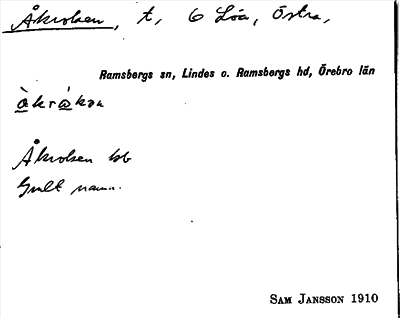 Åkroken, t, 6 Löa, Östra,
Ramsbergs sn, Lindes o. Ramsbergs hd, Örebro län
Åkroken bb
Gult namn.
SAM JANSSON 1910